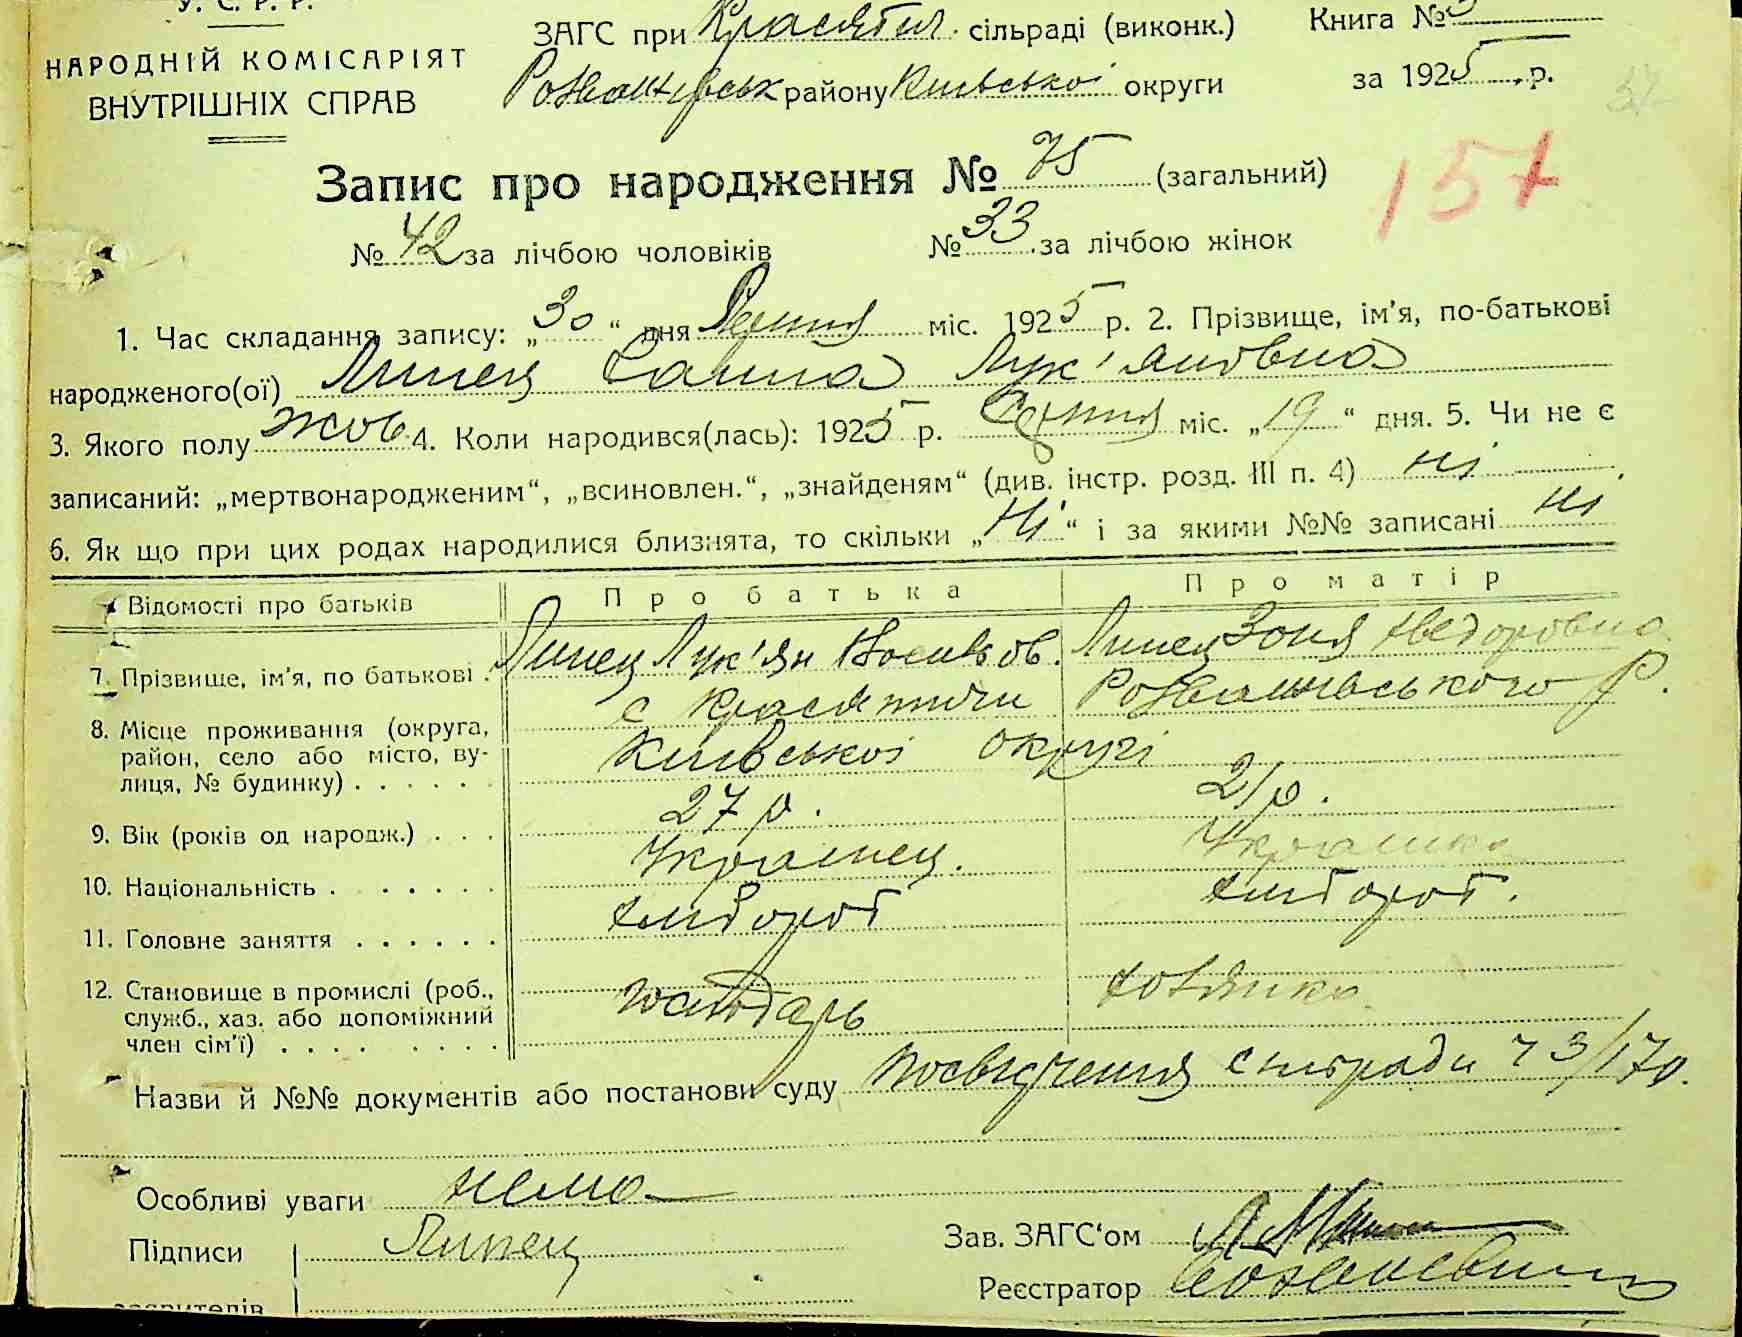 У. С. Р. Р.
НАРОДНІЙ КОМІСАРІЯТ
ВНУТРІШНІХ СПРАВ
ЗАГС при Красятич. сільраді (виконк.)
району Київської округи
Книга №
за 1925 р.
Запис про народження № 75 (загальний)
157
№ 42 за лічбою чоловіків № 33 за лічбою жінок
1. Час складання запису: „30“ дня Серпня міс. 1925 р. 2. Прізвище, ім'я, по-батькові
народженого(ої) Линец Ганна Лук'янівна
3. Якого полу жоч 4. Коли народився(лась): 1925 р. Серпня міс. „19“ дня. 5. Чи не є
записаний: „мертвонародженим“, „всиновлен.“, „знайденям“ (див. інстр. розд. III п. 4) ні
6. Як що при цих родах народилися близнята, то скільки „Ні“ і за якими №№ записані ні
Відомості про батьків Про батька Про матір
7. Прізвище, ім'я, по батькові Линец Лук'ян Линец Зоня Федоровна
8. Місце проживання (округа, район, село або місто, вулиця, № будинку) с Красятичи Розважівського р.
Київської округі
9. Вік (років од народж.) 27 р. 21 р.
10. Національність Українец. Українка
11. Головне заняття хлібороб хлібороб.
12. Становище в промислі (роб., служб., хаз. або допоміжний член сім'ї) господарь хозяйка
Назви й №№ документів або постанови суду посвідчення сільради ч 3/170.
Особливі уваги нема
Підписи Линец
заявителів
Зав. ЗАГС'ом
Реєстратор